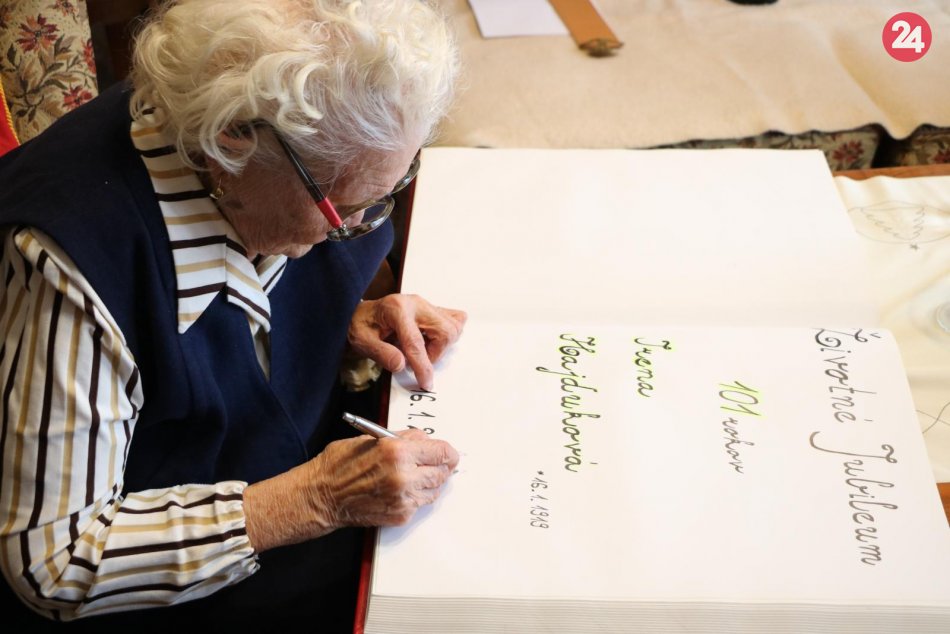 24
Životné Jubileum
101 rokov
Irena
Hajduková
*16.1.1919
16.1.2